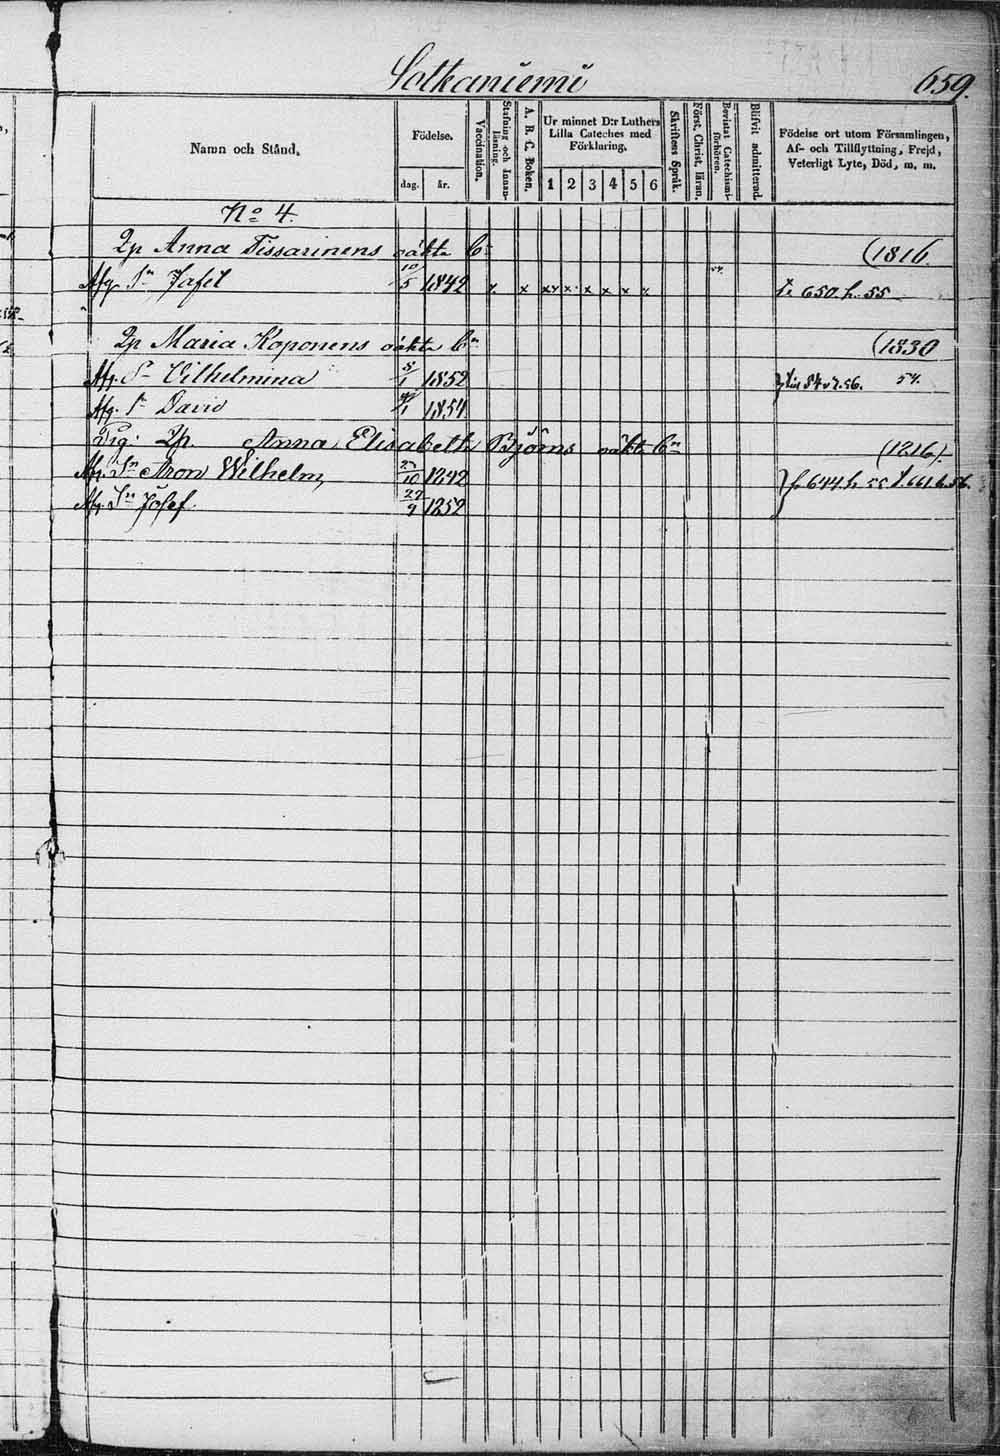 Solkaniemi 659.
Namn och Stånd.
Födelse.
dag. år.
Vaccination.
Stafning och Innan-läsning.
A. B. C. Boken.
Ur minnet D:r Luthers Lilla Cateches med Förklaring.
1 2 3 4 5 6
Skriftens Språk.
Först. Christ. läran.
Bevistat Catechismi-förhören.
Blifvit admitterad.
Födelse ort utom Församlingen,
Af- och Tillflyttning, Frejd,
Veterligt Lyte, Död, m. m.
No 4.
Qp Anna Tissarinens oäkta Bn (1816.
Afg. Sn Jafet 10/5 1842 x x x x x x x x 650. h. 55
Qp Maria Koponens oäkta Bn (1830
Vilhelmina 8/1 1852 54.
Afg. Sn David 1 1854
Pig. Qp. Anna Elisabeth Björns oäkt Bn (1216).
Afg. Sn Aron Wilhelm 10 1242 f. 644. h. 55
Afg. Sn Josef 27/9 1252